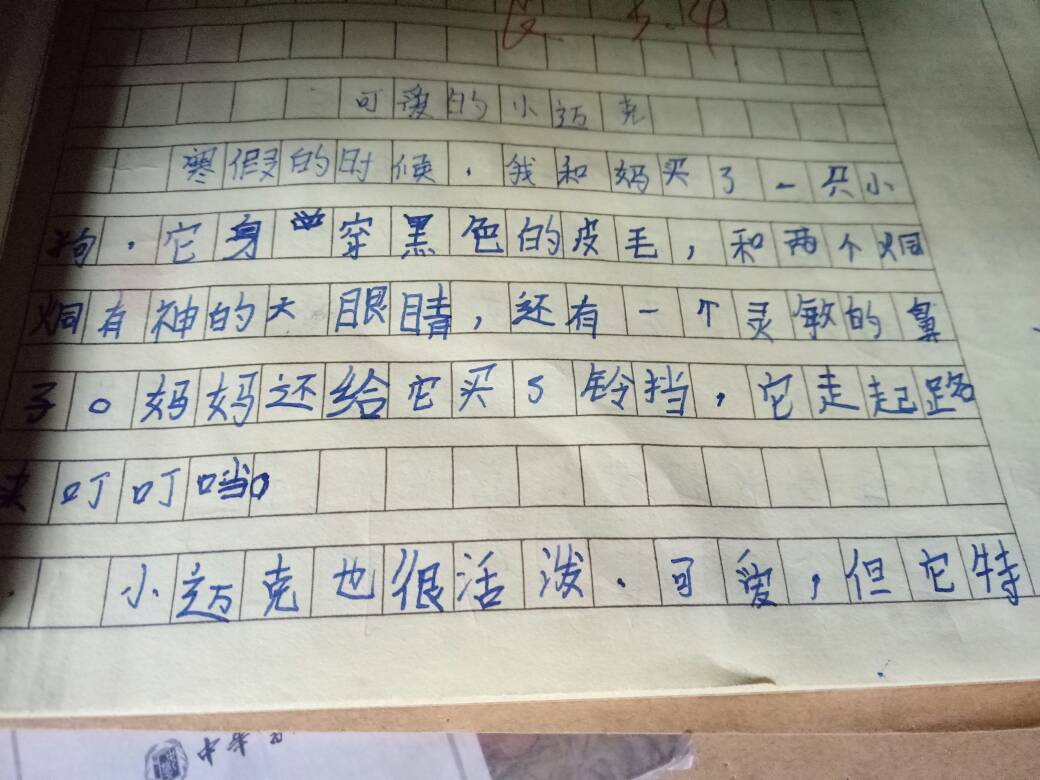 3.4
可爱的小迈克
寒假的时候.我和妈买了一只小
狗.它身穿黑色的皮毛,和两个炯
炯有神的大眼睛,还有一个灵敏的鼻
子。妈妈还给它买了铃挡,它走起路
来叮叮噹。
小迈克也很活泼.可爱,但它特
中华